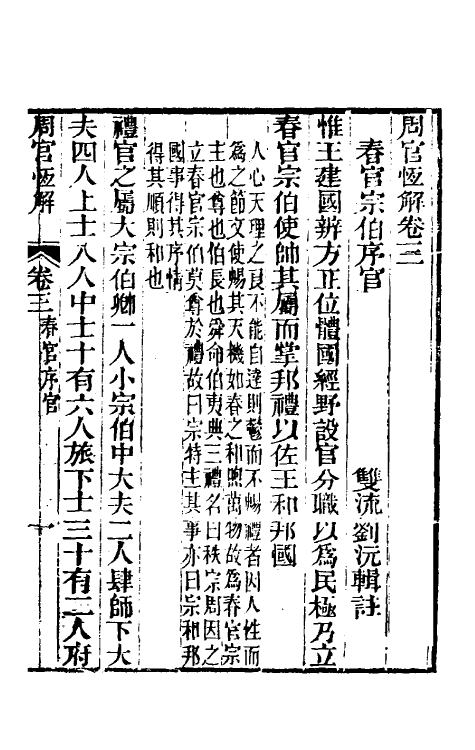 周官恆解卷三
春官宗伯序官　雙流劉沅輯註
惟王建國辨方正位體國經野設官分職以爲民極乃立
春官宗伯使帥其屬而掌邦禮以佐王和邦國
人心天理之良不能自達則鬱而不暢禮者因人性而
爲之節文使暢其天機如春之和煦萬物故爲春官宗
主也尊也伯長也舜命伯夷典三禮名曰秩宗周因之
立春官宗伯莫尊於禮故曰宗特主其事亦曰宗和邦
國事得其序情
得其順則和也
禮官之屬大宗伯卿一人小宗伯中大夫二人肆師下大
夫四人上士八人中士十有六人旅下士三十有二人府
周官恆解　卷三　春官序官　一